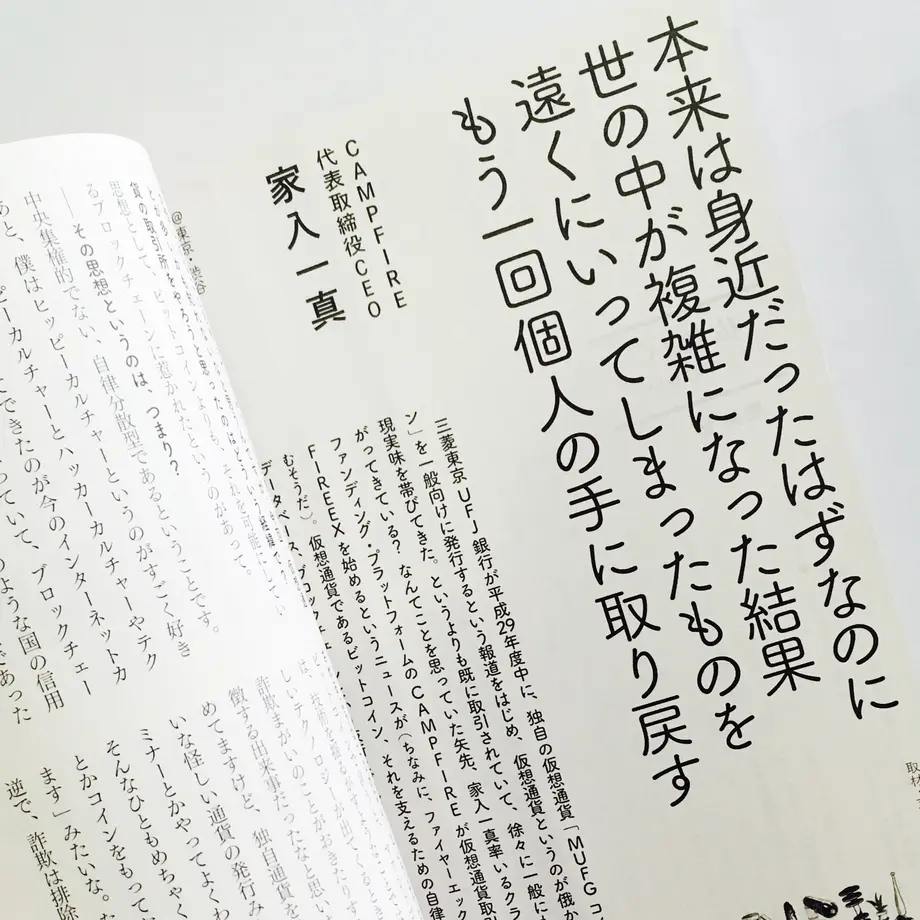 本来は身近だったはずなのに
世の中が複雑になった結果
遠くにいってしまったものを
もう一回個人の手に取り戻す
CAMPFIRE
代表取締役CEO
家入一真
三菱東京UFJ銀行が平成29年度中に、独自の仮想通貨「MUFGコ
ン」を一般向けに発行するという報道をはじめ、仮想通貨というのが俄か
現実味を帯びてきた。というよりも既に取引されていて、徐々に一般に
がってきている? なんてことを思っていた矢先、家入一真率いるクラ
ファンディング・プラットフォームのCAMPFIREが仮想通貨取
FIREEXを始めるというニュースが(ちなみに、ファイヤーエック
むそうだ)。仮想通貨であるビットコイン、それを支えるための自律
データベース、ブロックチェ
@東京・渋谷
貨の取引所をやろうと思ったのは
思想として、ビットコインよりも、
るブロックチェーンに惹かれたというのがあって、
――その思想というのは、つまり?
中央集権的でない、自律分散型であるということです。
あと、僕はヒッピーカルチャーとハッカーカルチャーやテク
ピーカルチャーというのがすごく好き
できたのが今のインターネットカ
っていて、ブロックチェー
のような国の信用
であった
しいテクノロジーが出てくる
詐欺まがいのことがおきたりす
徴する出来事だったなと思い
めてますけど、独自通貨を
いな怪しい通貨の発行み
ミナーとかやってよくわ
そんなひともめちゃく
とかコインをもって
ます」みたいな。
逆で、詐欺は排除
取材